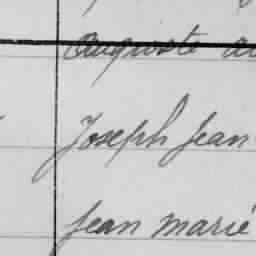 auguste
Joseph Jean
Jean marié